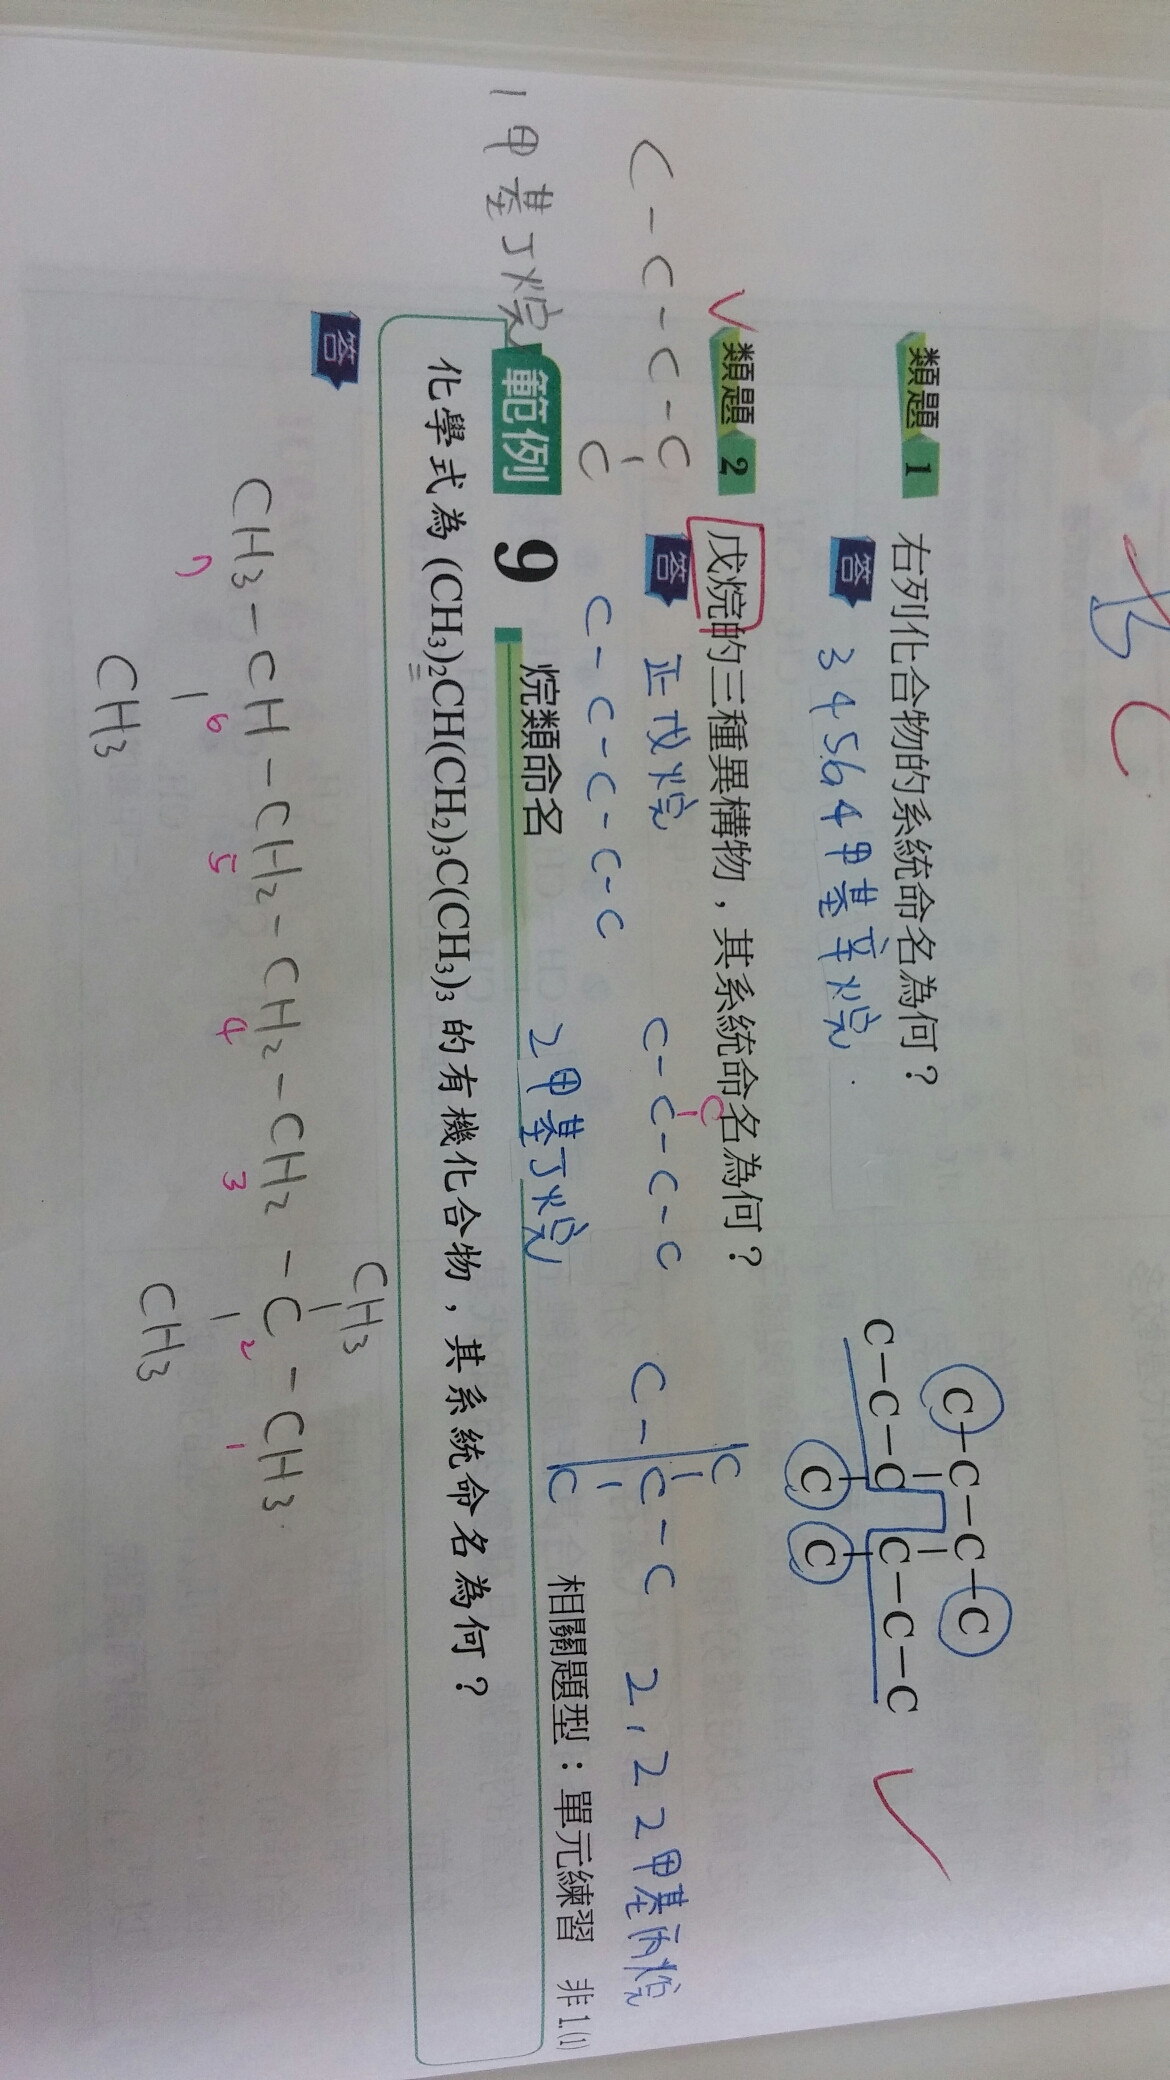 C
C-C-C-C
類題 1 右列化合物的系統命名為何？
答 3 4 5 6 4 甲基辛烷
C-C-C-C
C-C-C C-C-C
C C
類題 2 戊烷的三種異構物，其系統命名為何？
答 正戊烷
C-C-C-C-C
C
C-C-C-C
2甲基丁烷
C
C-C-C
C
2,2 2甲基丙烷
C-C-C-C
C
1甲基丁烷
範例 9 烷類命名
相關題型：單元練習 非1.(1)
化學式為 (CH3)2CH(CH2)3C(CH3)3 的有機化合物，其系統命名為何？
答
CH3
CH3-CH-CH2-CH2-CH2-C-CH3
7 6 5 4 3 2 1
CH3 CH3